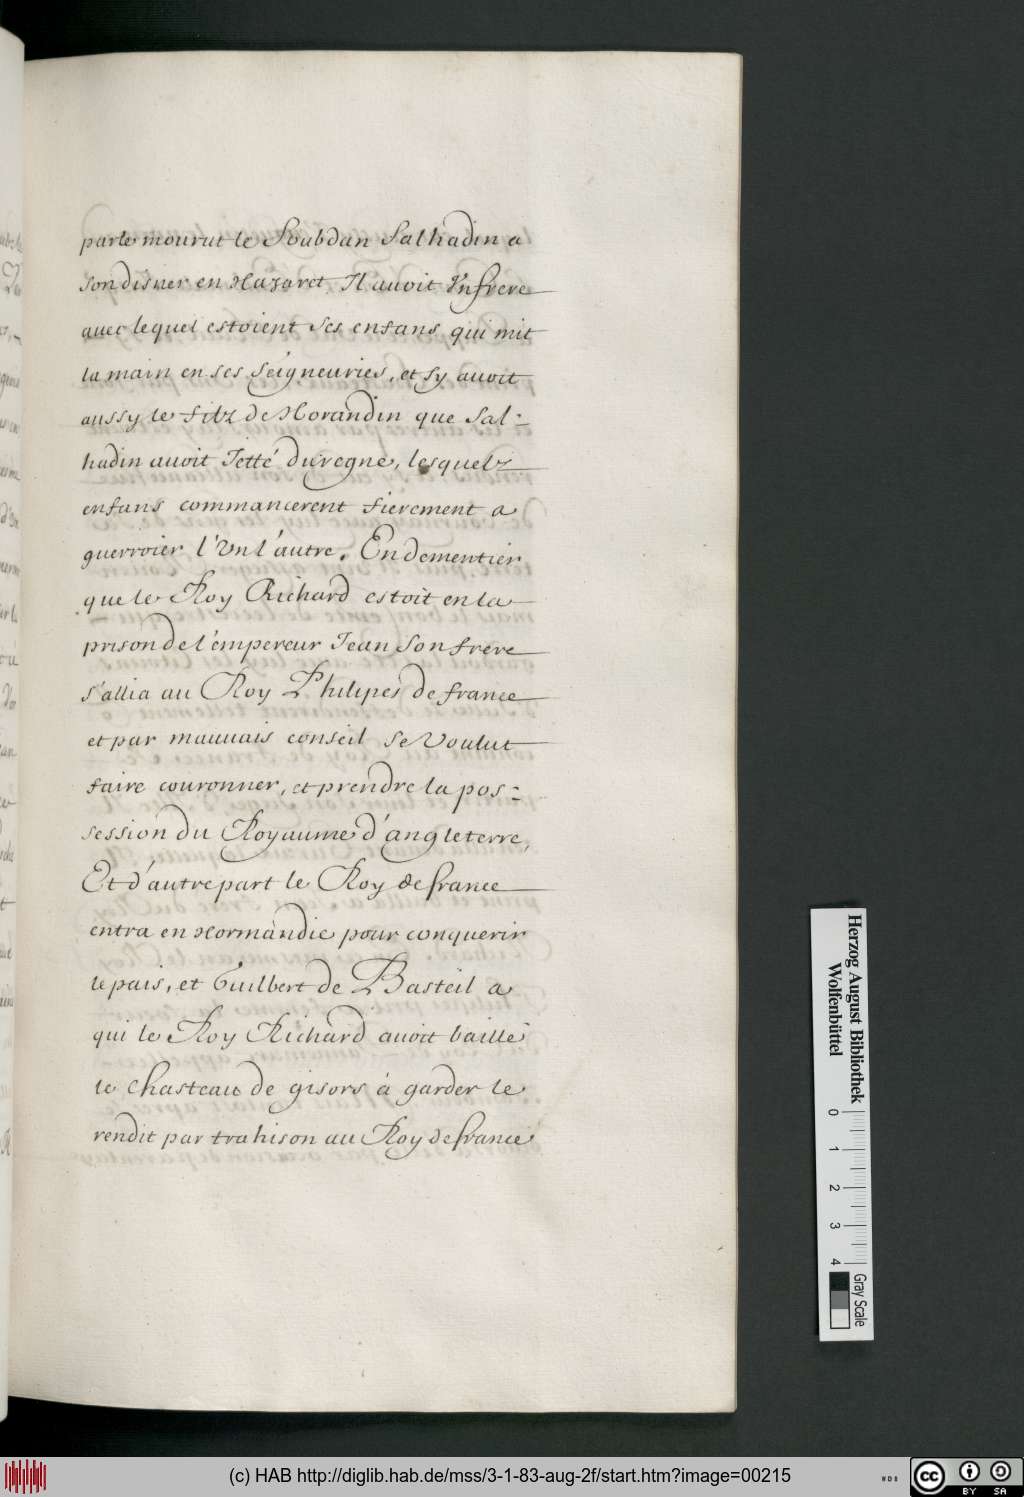 parle mourut le Soubdan Salhadin a
son disner en Nazaret. Il auoit Vn frere
auec lequel estoient ses enfans qui mit
la main en ses seigneuries, et sy auoit
aussy le filz de Norandin que Sal-
hadin auoit Jetté du regne, lesquelz
enfans commancerent fierement a
guerroier l'Vn l'autre. En dementier
que le Roy Richard estoit en la
prison de l'empereur Jean son frere
s'allia au Roy Philipes de france
et par mauuais conseil se Voulut
faire couronner, et prendre la pos-
session du Royaume d'angleterre,
Et d'autre part le Roy de france
entra en Normandie pour conquerir
le pais, et Guilbert de Basteil a
qui le Roy Richard auoit baillé
le Chasteau de gisors à garder le
rendit par trahison au Roy de france
Herzog August Bibliothek
Wolfenbüttel
0 1 2 3 4
Gray Scale
(c) HAB http://diglib.hab.de/mss/3-1-83-aug-2f/start.htm?image=00215
WDB
CC BY SA